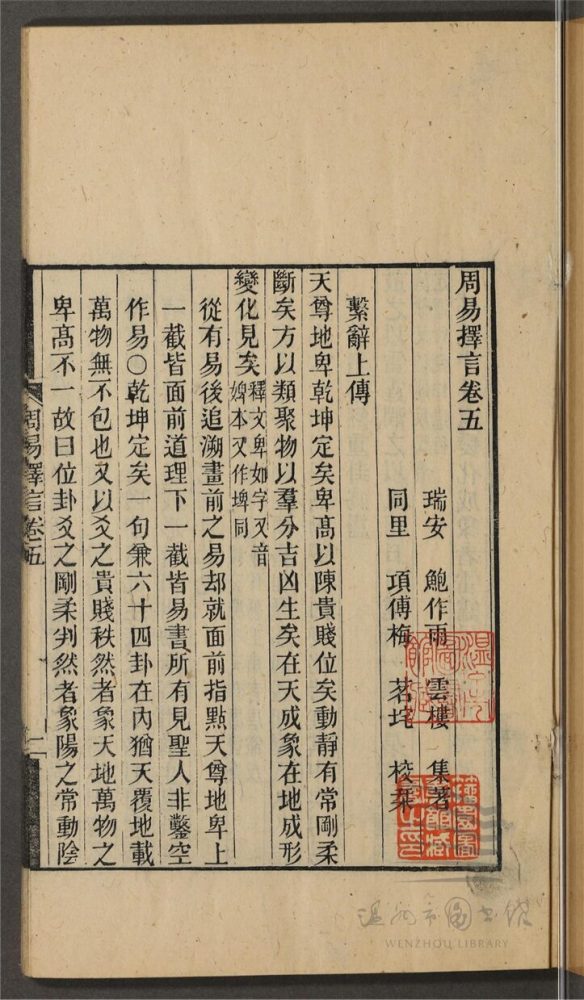 周易擇言卷五
瑞安　鮑作雨　雲樓　集著
同里　項傅梅　茗垞　校栞
繫辭上傳
天尊地卑乾坤定矣卑高以陳貴賤位矣動靜有常剛柔
斷矣方以類聚物以羣分吉凶生矣在天成象在地成形
變化見矣釋文卑如字又音
婢本又作埤同
從有易後追溯畫前之易却就面前指點天尊地卑上
一截皆面前道理下一截皆易書所有見聖人非鑿空
作易○乾坤定矣一句兼六十四卦在內猶天覆地載
萬物無不包也又以爻之貴賤秩然者象天地萬物之
卑高不一故曰位卦爻之剛柔判然者象陽之常動陰
周易擇言卷五
一
溫州市圖書館
WENZHOU LIBRARY